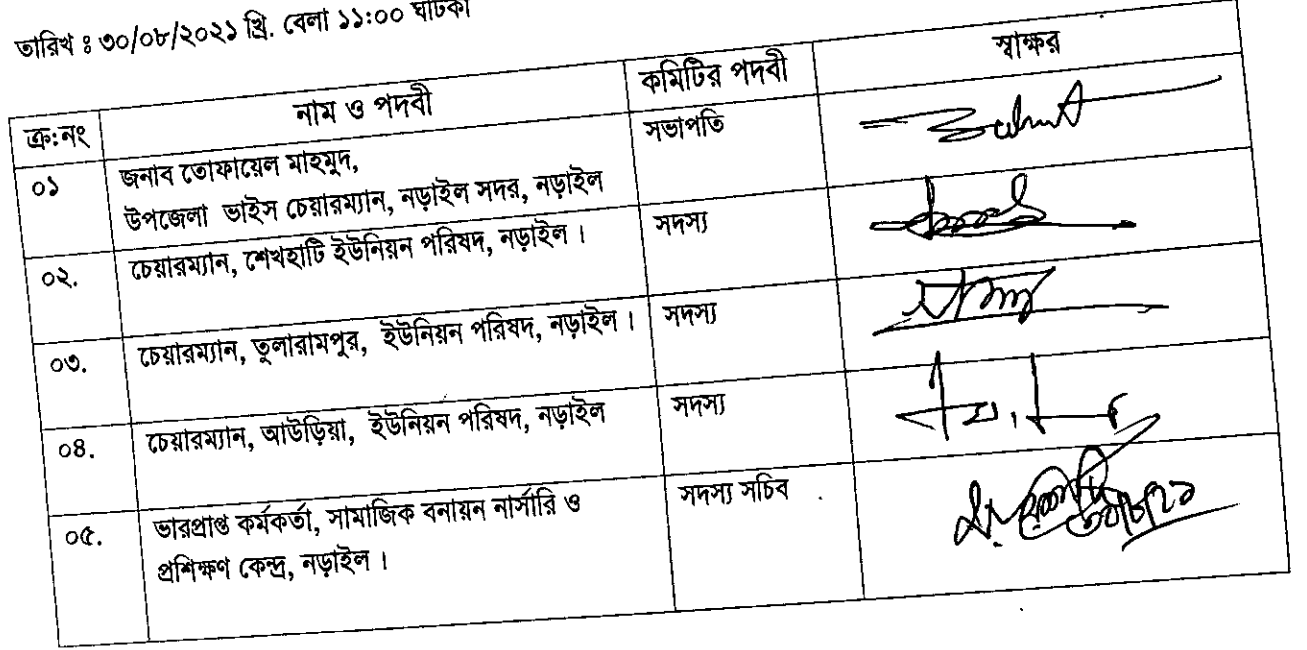 তারিখ ঃ ৩০/০৮/২০২১ খ্রি. বেলা ১১:০০ ঘটিকা
ক্র:নং নাম ও পদবী কমিটির পদবী স্বাক্ষর
০১ জনাব তোফায়েল মাহমুদ, সভাপতি
উপজেলা ভাইস চেয়ারম্যান, নড়াইল সদর, নড়াইল
০২. চেয়ারম্যান, শেখহাটি ইউনিয়ন পরিষদ, নড়াইল । সদস্য
০৩. চেয়ারম্যান, তুলারামপুর, ইউনিয়ন পরিষদ, নড়াইল । সদস্য
০৪. চেয়ারম্যান, আউড়িয়া, ইউনিয়ন পরিষদ, নড়াইল সদস্য
০৫. ভারপ্রাপ্ত কর্মকর্তা, সামাজিক বনায়ন নার্সারি ও সদস্য সচিব
প্রশিক্ষণ কেন্দ্র, নড়াইল ।